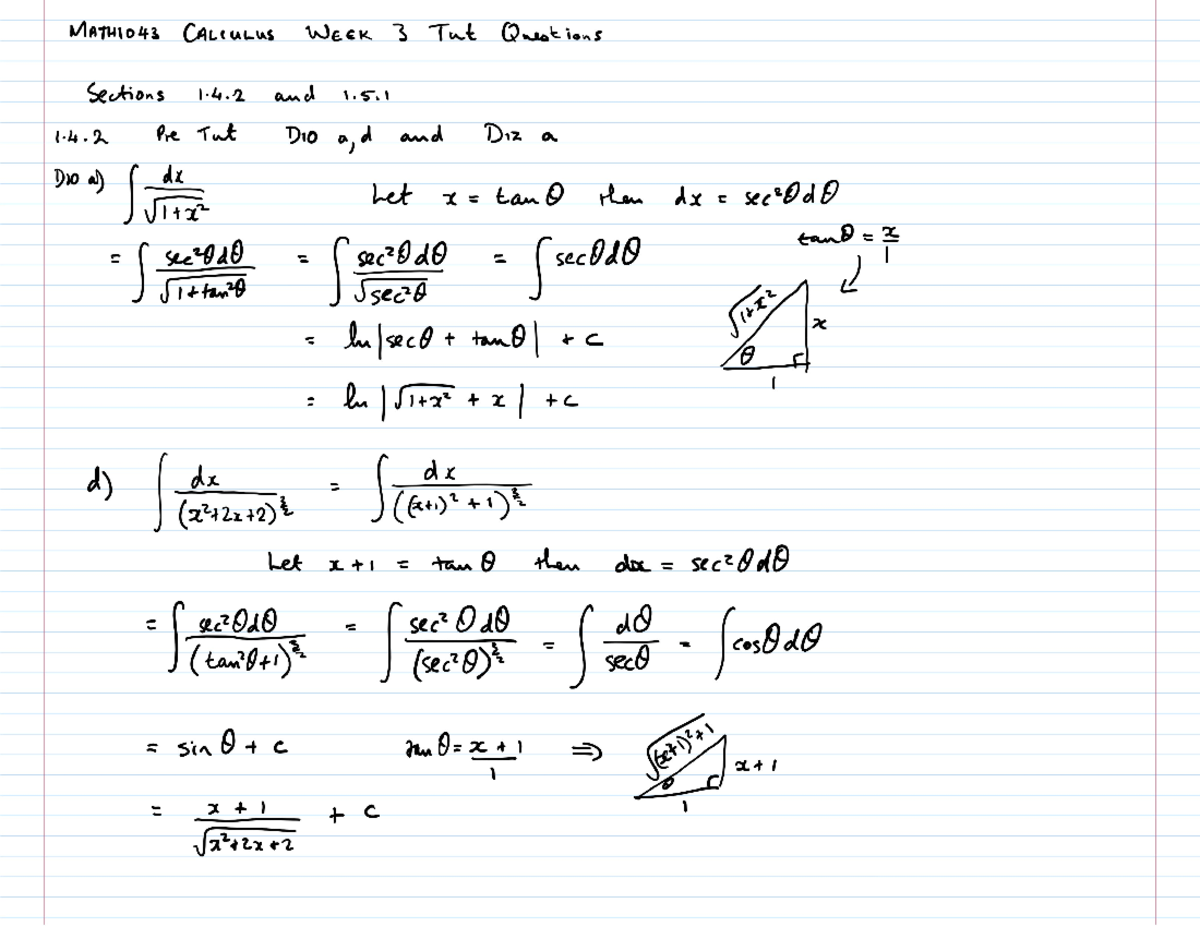 MATH1043 CALCULUS WEEK 3 Tut Questions
Sections 1.4.2 and 1.5.1
1.4.2 Pre Tut D10 a, d and D12 a
D10 a) ∫ dx/√(1+x²) Let x = tanθ then dx = sec²θdθ
tanθ = x/1
= ∫ sec²θdθ/√(1+tan²θ) = ∫ sec²θdθ/√(sec²θ) = ∫ secθdθ
√(1+x²) x θ 1
= ln|secθ + tanθ| + c
= ln|√(1+x²) + x| + c
d) ∫ dx/(x²+2x+2)^(3/2) = ∫ dx/((x+1)² + 1)^(3/2)
Let x+1 = tanθ then dx = sec²θdθ
= ∫ sec²θdθ/(tan²θ+1)^(3/2) = ∫ sec²θdθ/(sec²θ)^(3/2) = ∫ dθ/secθ = ∫ cosθdθ
= sinθ + c tanθ = (x+1)/1 ⇒ √((x+1)²+1) x+1 θ 1
= (x+1)/√(x²+2x+2) + c